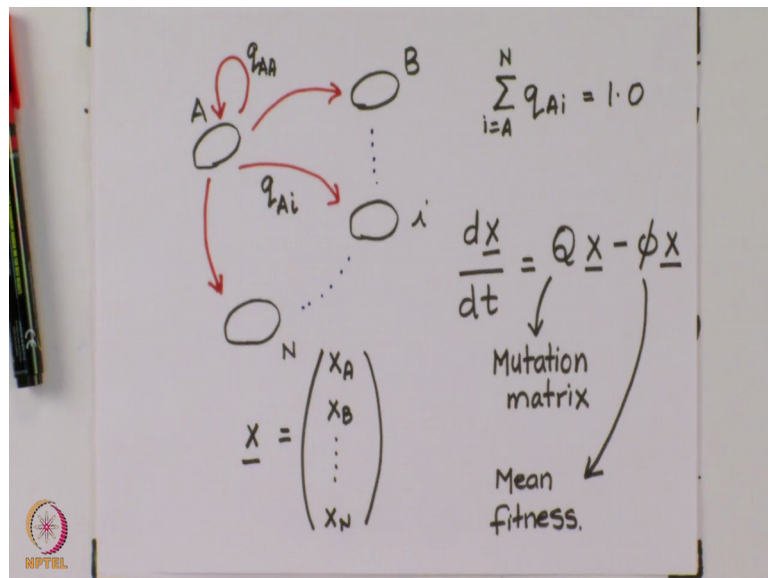 q_AA
A
B
q_Ai
i
N
N
∑ q_Ai = 1.0
i=A
dx/dt = Q x - ϕ x
Mutation
matrix
Mean
fitness.
x = (x_A
x_B
⋮
x_N)
NPTEL